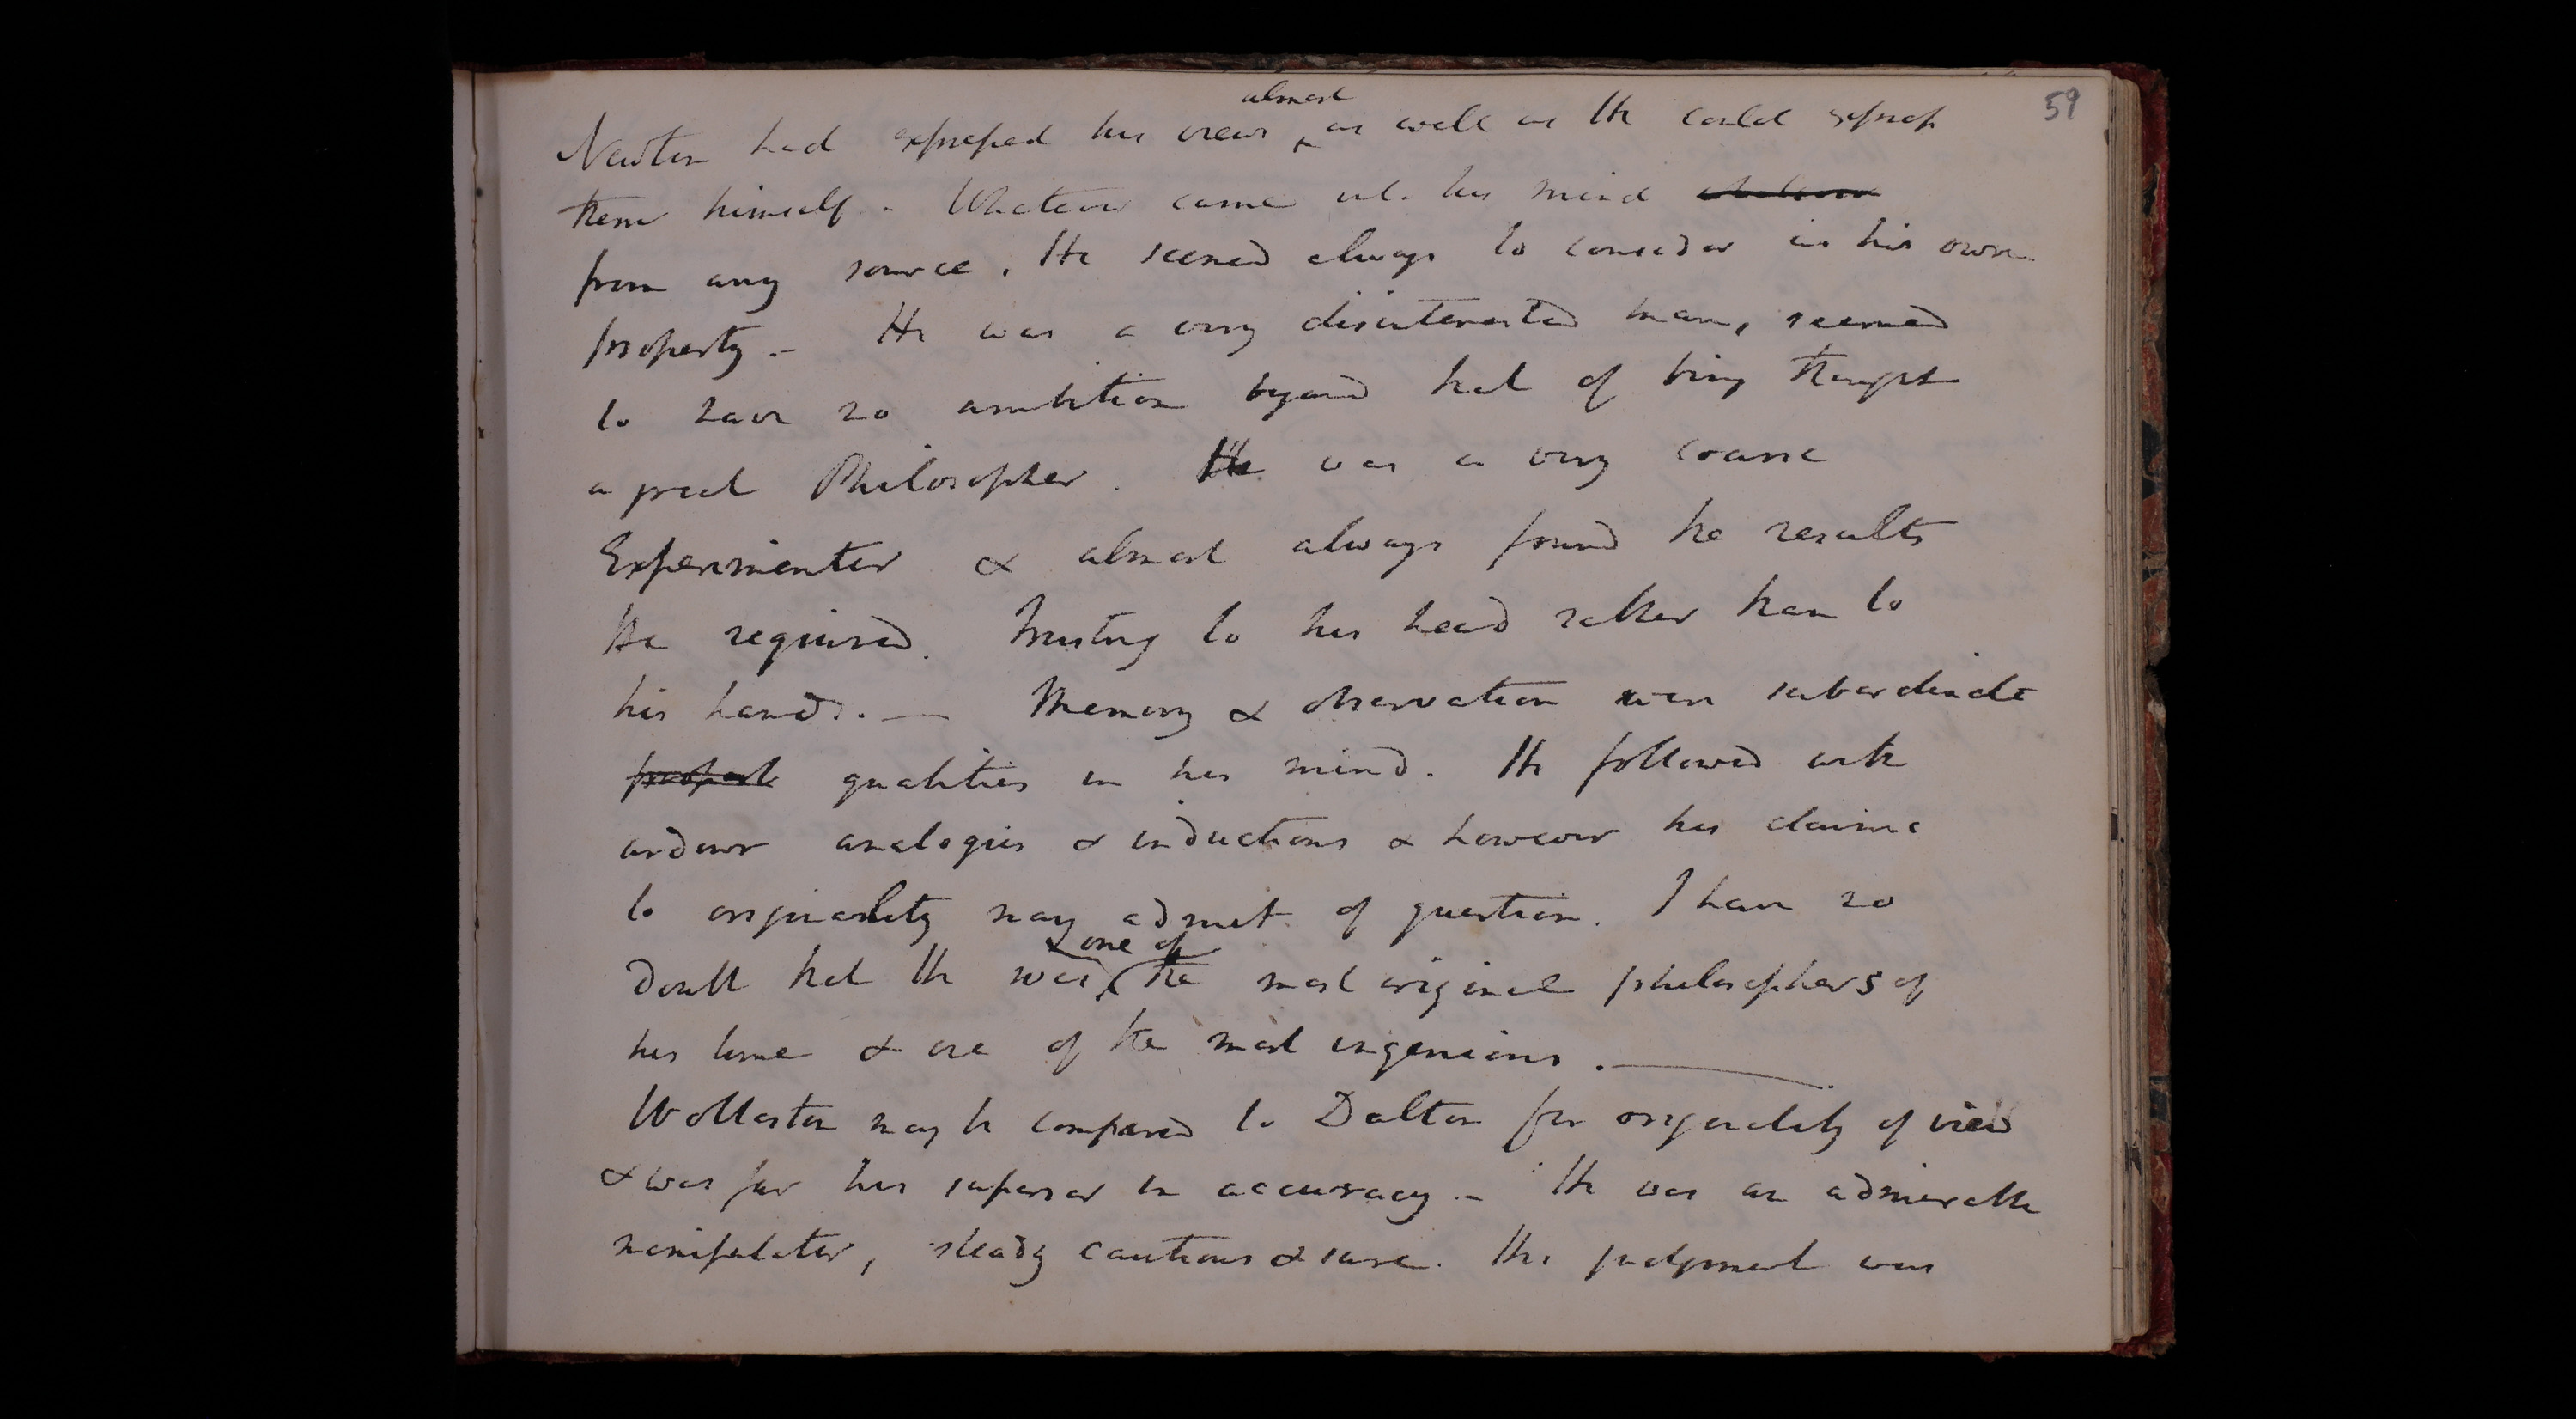 59
Newton had expressed his views almost as well as He could express
them himself. - Whatever came into his mind
from any source, He seemed always to consider as his own
property. - He was a very disinterested man, seemed
to have no ambition beyond that of being thought
a great Philosopher. He was a very coarse
Experimenter & almost always found the results
He required. Trusting to his head rather than to
his hands. — Memory & observation were subordinate
qualities in his mind. He followed with
ardour analogies & inductions & however his claims
to originality may admit of question. I have no
doubt that He was one of the most original philosophers of
his time & one of the most ingenious. —
Wollaston may be compared to Dalton for originality of view
& was far his superior in accuracy. - He was an admirable
manipulator, steady cautious & sure. His judgment was